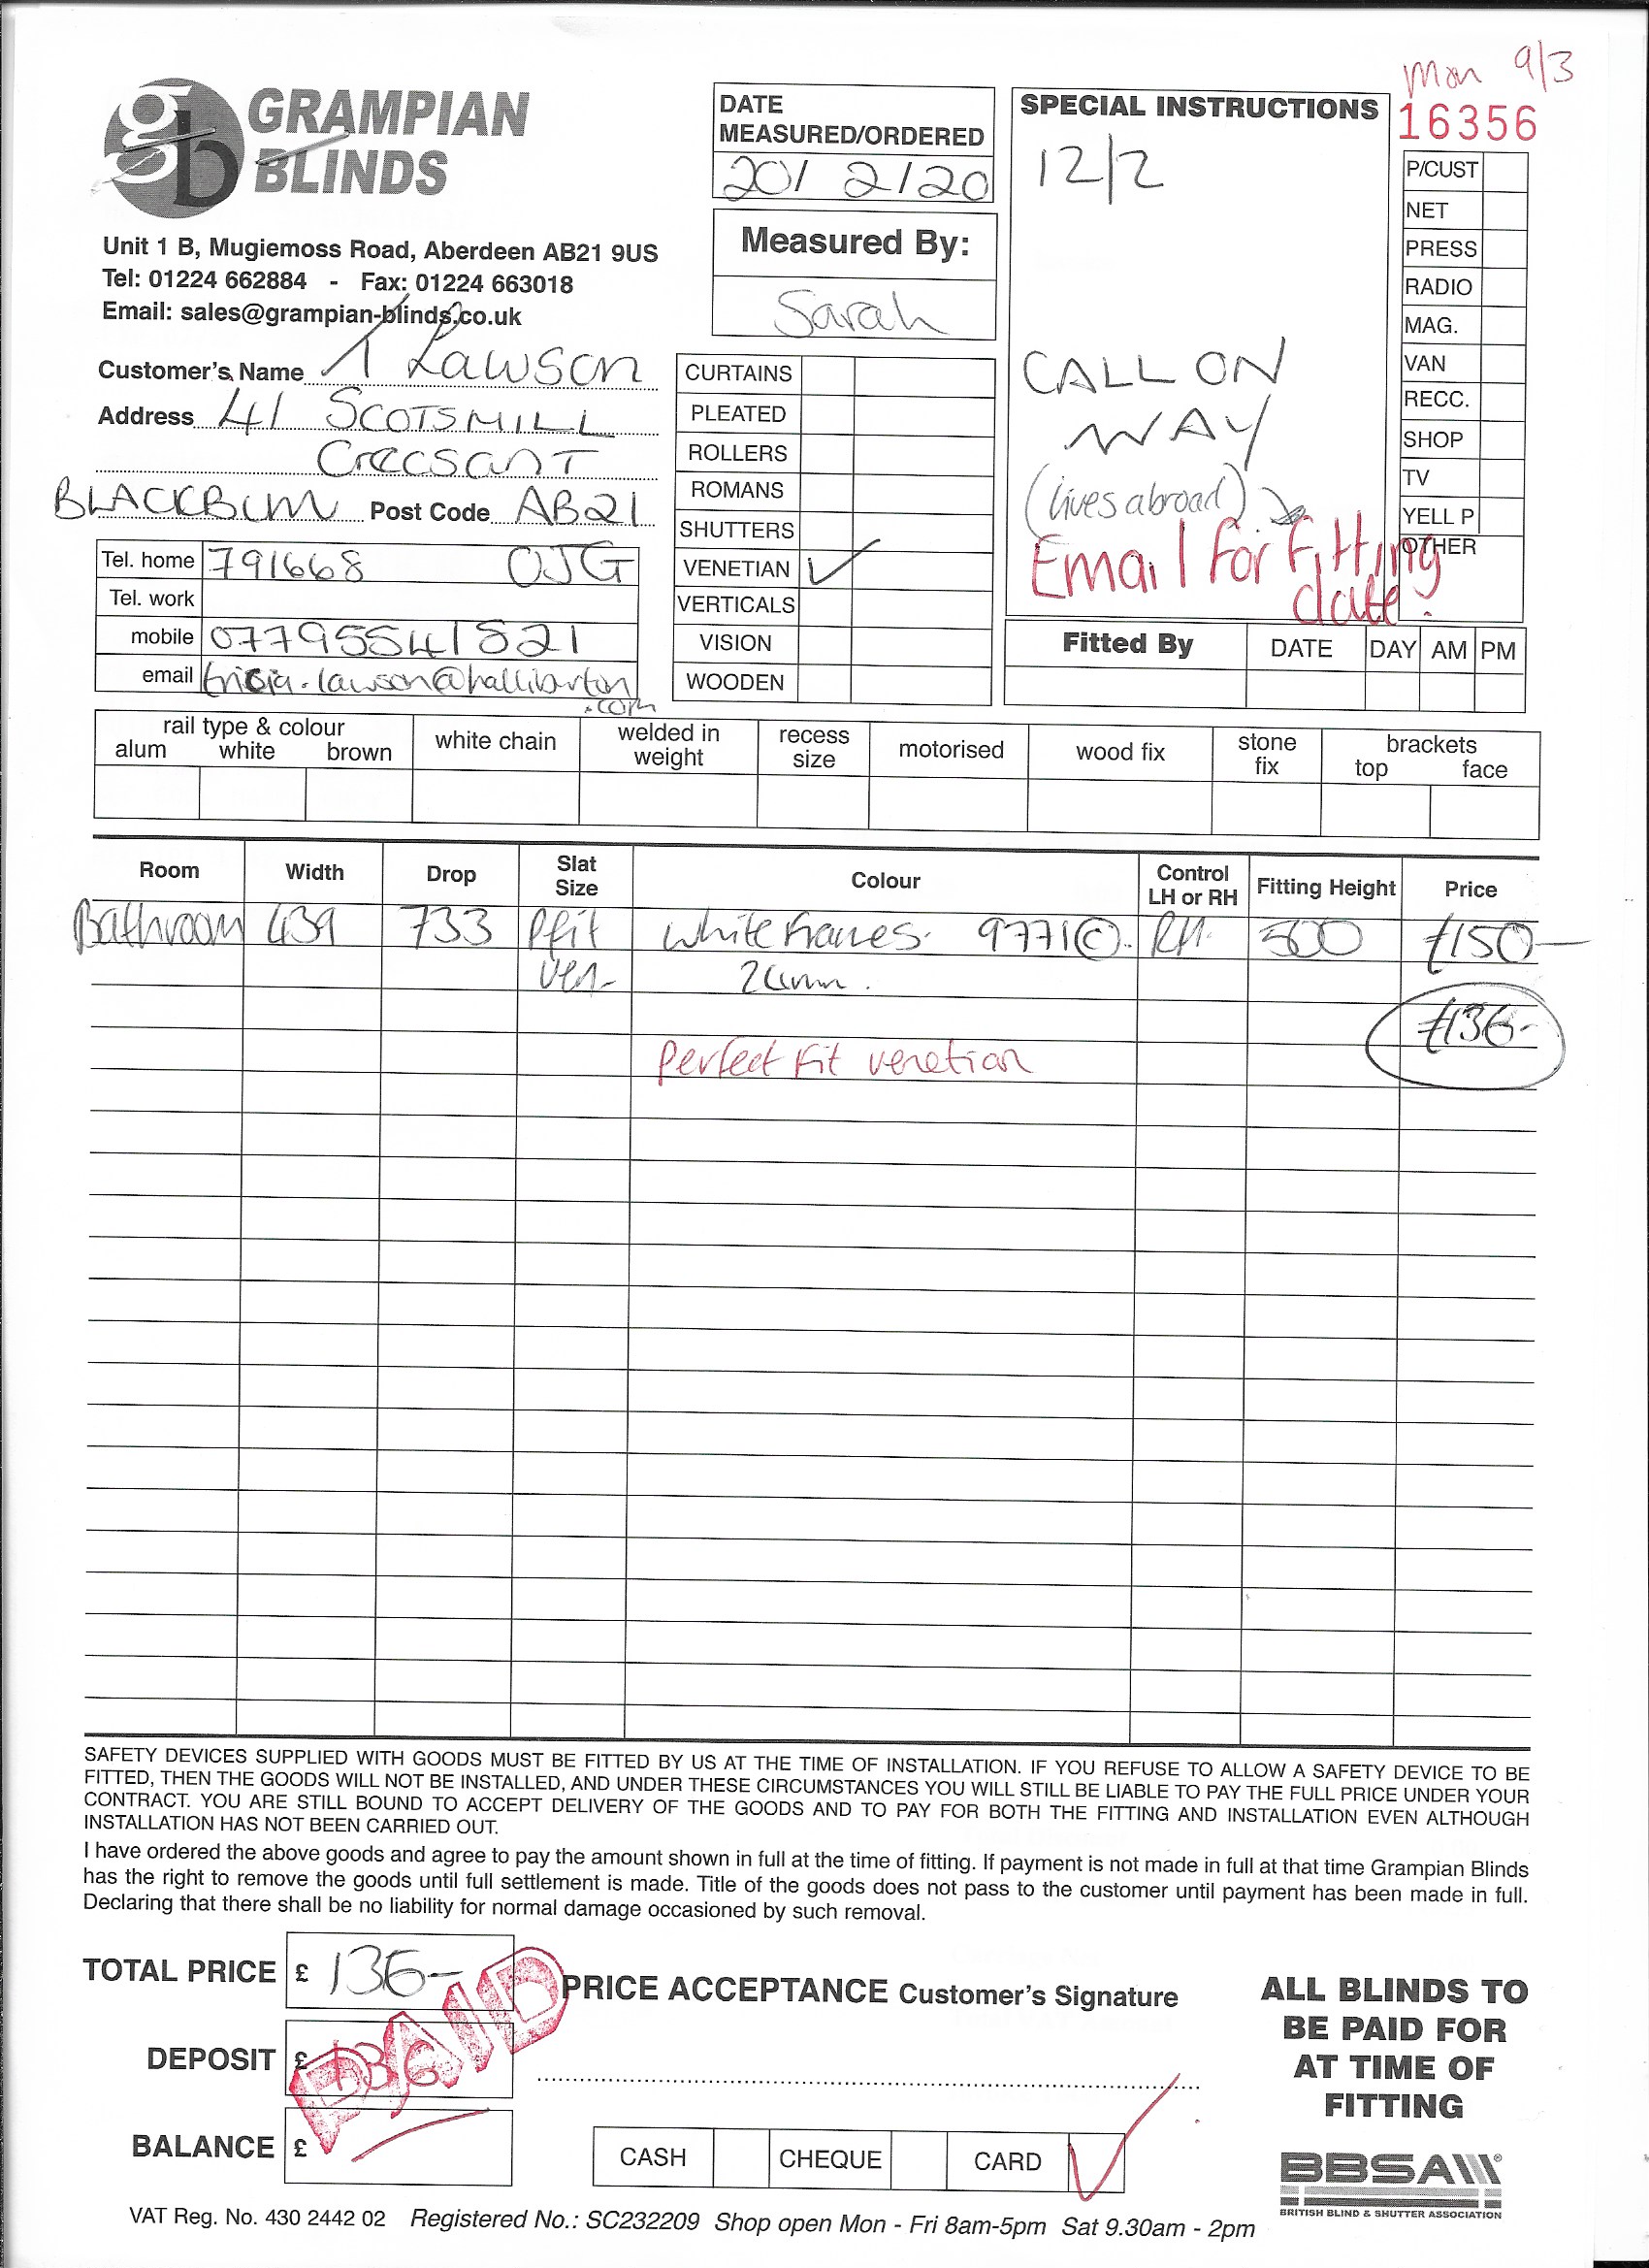 Mon 9/3
GRAMPIAN
BLINDS
Unit 1 B, Mugiemoss Road, Aberdeen AB21 9US
Tel: 01224 662884 - Fax: 01224 663018
Email: sales@grampian-blinds.co.uk
Customer's Name T Lawson
Address 41 SCOTSMILL
CrecsanT
BLACKBURN Post Code AB21
Tel. home 791668 OJG
Tel. work
mobile 07795541821
email tricia.lawson@halliburton
.com
DATE
MEASURED/ORDERED
20/ 2/20
Measured By:
Sarah
CURTAINS
PLEATED
ROLLERS
ROMANS
SHUTTERS
VENETIAN ✓
VERTICALS
VISION
WOODEN
SPECIAL INSTRUCTIONS
12/2
CALL ON
WAY
(lives abroad)
Email for fitting
date.
16356
P/CUST
NET
PRESS
RADIO
MAG.
VAN
RECC.
SHOP
TV
YELL P
OTHER
Fitted By DATE DAY AM PM
rail type & colour
alum white brown
white chain
welded in
weight
recess
size
motorised
wood fix
stone
fix
brackets
top face
Room Width Drop Slat Size Colour Control LH or RH Fitting Height Price
Bathroom 439 733 Pfit White frames. 9771©. RH. 500 £150-
Ven-
£136-
Perfect Fit venetian
SAFETY DEVICES SUPPLIED WITH GOODS MUST BE FITTED BY US AT THE TIME OF INSTALLATION. IF YOU REFUSE TO ALLOW A SAFETY DEVICE TO BE
FITTED, THEN THE GOODS WILL NOT BE INSTALLED, AND UNDER THESE CIRCUMSTANCES YOU WILL STILL BE LIABLE TO PAY THE FULL PRICE UNDER YOUR
CONTRACT. YOU ARE STILL BOUND TO ACCEPT DELIVERY OF THE GOODS AND TO PAY FOR BOTH THE FITTING AND INSTALLATION EVEN ALTHOUGH
INSTALLATION HAS NOT BEEN CARRIED OUT.
I have ordered the above goods and agree to pay the amount shown in full at the time of fitting. If payment is not made in full at that time Grampian Blinds
has the right to remove the goods until full settlement is made. Title of the goods does not pass to the customer until payment has been made in full.
Declaring that there shall be no liability for normal damage occasioned by such removal.
TOTAL PRICE £ 136-
DEPOSIT £ 136
PAID
BALANCE £
PRICE ACCEPTANCE Customer's Signature
CASH CHEQUE CARD ✓
ALL BLINDS TO
BE PAID FOR
AT TIME OF
FITTING
BBSA
BRITISH BLIND & SHUTTER ASSOCIATION
VAT Reg. No. 430 2442 02 Registered No.: SC232209 Shop open Mon - Fri 8am-5pm Sat 9.30am - 2pm